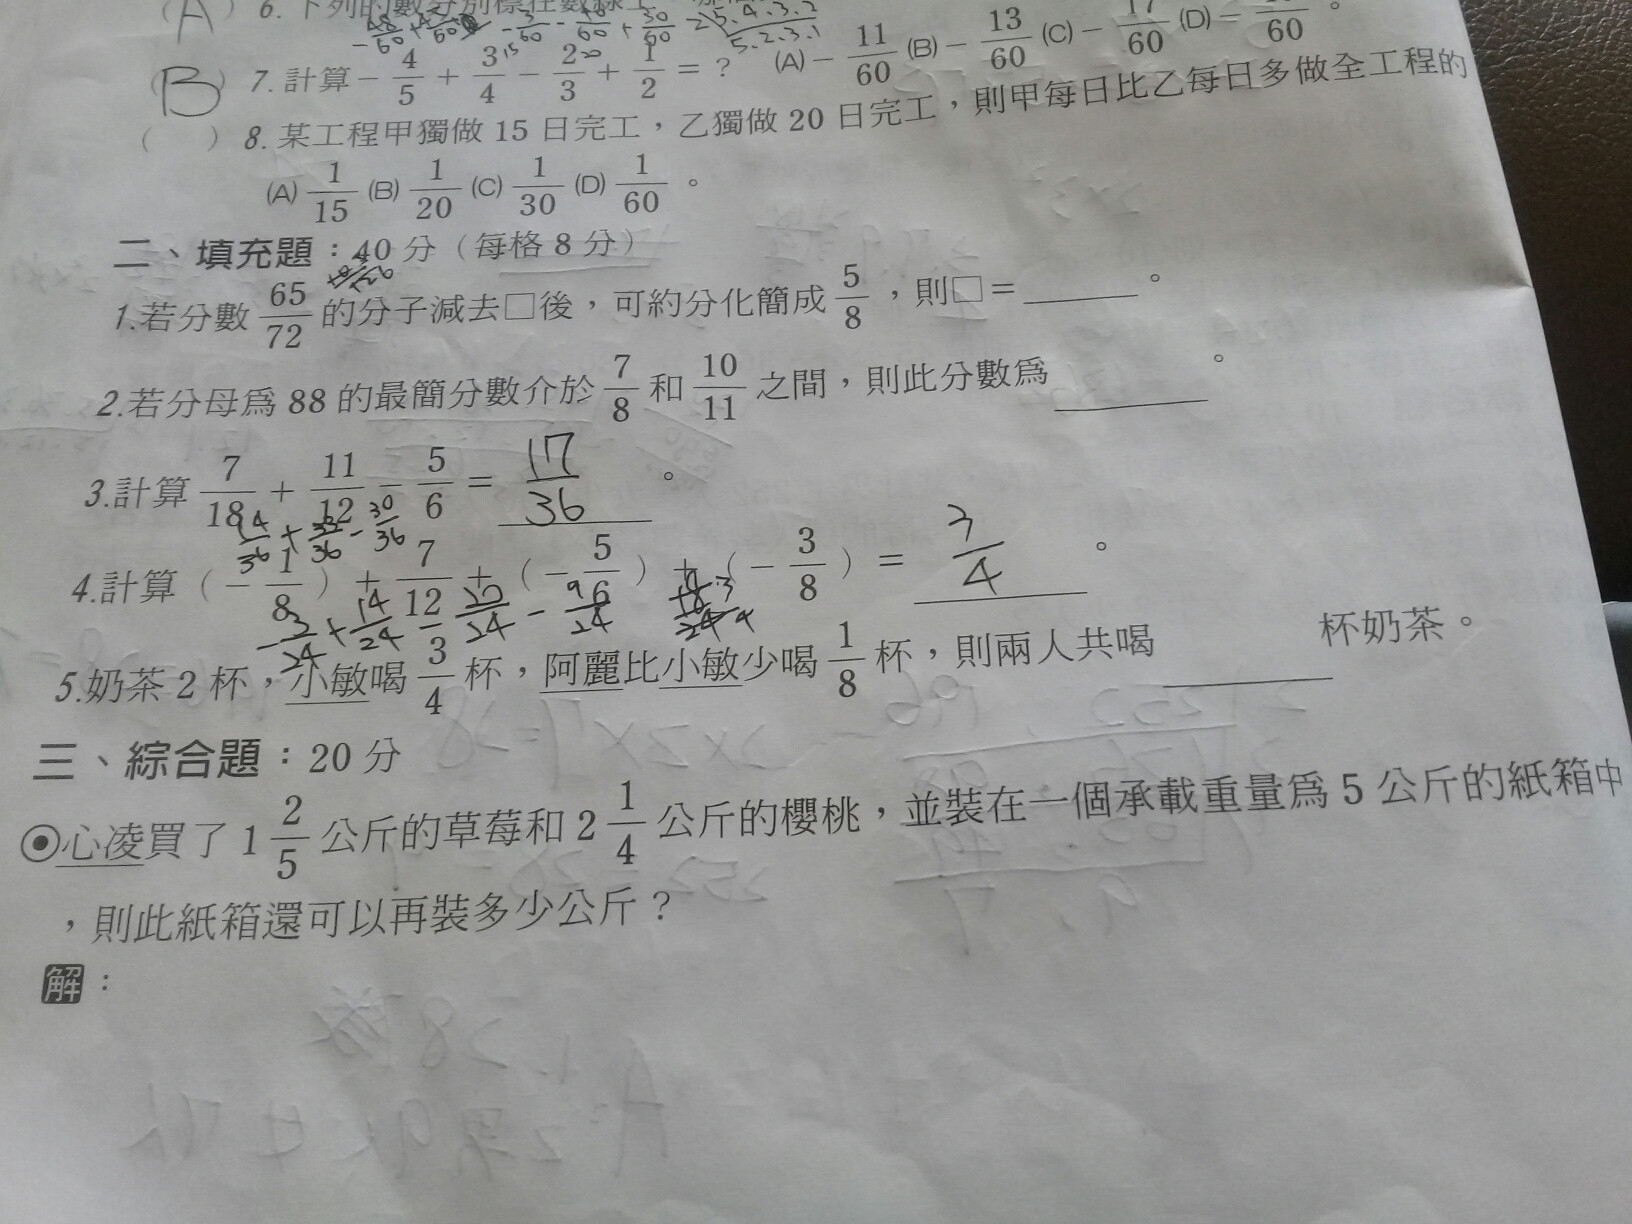 (A) 6. 下列的數分別標在數線上
(B) 7. 計算 -4/5 + 3/4 - 2/3 + 1/2 = ? (A) -11/60 (B) -13/60 (C) -17/60 (D) -
( ) 8. 某工程甲獨做 15 日完工，乙獨做 20 日完工，則甲每日比乙每日多做全工程的
(A) 1/15 (B) 1/20 (C) 1/30 (D) 1/60 。
二、填充題：40 分（每格 8 分）
1.若分數 65/72 的分子減去□後，可約分化簡成 5/8 ，則□= ______ 。
2.若分母爲 88 的最簡分數介於 7/8 和 10/11 之間，則此分數爲 ______ 。
3.計算 7/18 + 11/12 - 5/6 = 17/36 。
14/36 + 33/36 - 30/36
4.計算（-1/8）+ 7/12 +（-5/6）+（-3/8）= 3/4 。
-3/24 + 14/24 - 20/24 - 9/24
5.奶茶 2 杯，小敏喝 3/4 杯，阿麗比小敏少喝 1/8 杯，則兩人共喝 ______ 杯奶茶。
三、綜合題：20 分
⊙心凌買了 1 2/5 公斤的草莓和 2 1/4 公斤的櫻桃，並裝在一個承載重量爲 5 公斤的紙箱中
，則此紙箱還可以再裝多少公斤？
解：